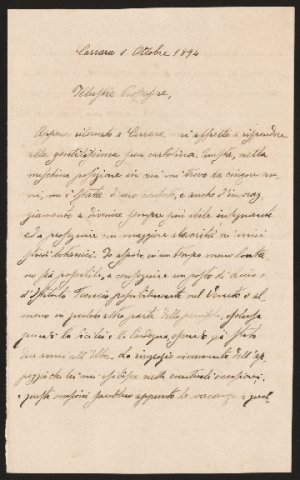 Carrara 1 Ottobre 1894
Illustre Professore,
Appena ritornato a Carrara, mi affretto a rispondere
alla gentilissima sua cartolina. Questa, nella
meschina posizione in cui mi trovo da cinque an-
ni, mi è stata di vero conforto, e anche d'incorag-
giamento a divenire sempre più abile insegnante
ed a proseguire con maggiore alacrità ne' miei
studi botanici. Io aspiro, in un tempo meno lonta-
no più possibile, a conseguire un posto di Liceo o
d'Istituto Tecnico possibilmente nel Veneto o al-
meno in qualche altra parte della penisola, esclusa
la Sicilia e la Sardegna, essendo già stato
due anni all'Elba. La ringrazio vivamente dell'ap-
poggio che Lei mi esibisce nelle eventuali occasioni,
e queste occasioni sarebbero appunto le vacanze